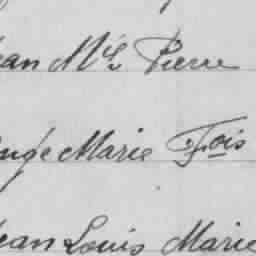 ean Mel Pierre
ange Marie Fois
Jean Louis Marie